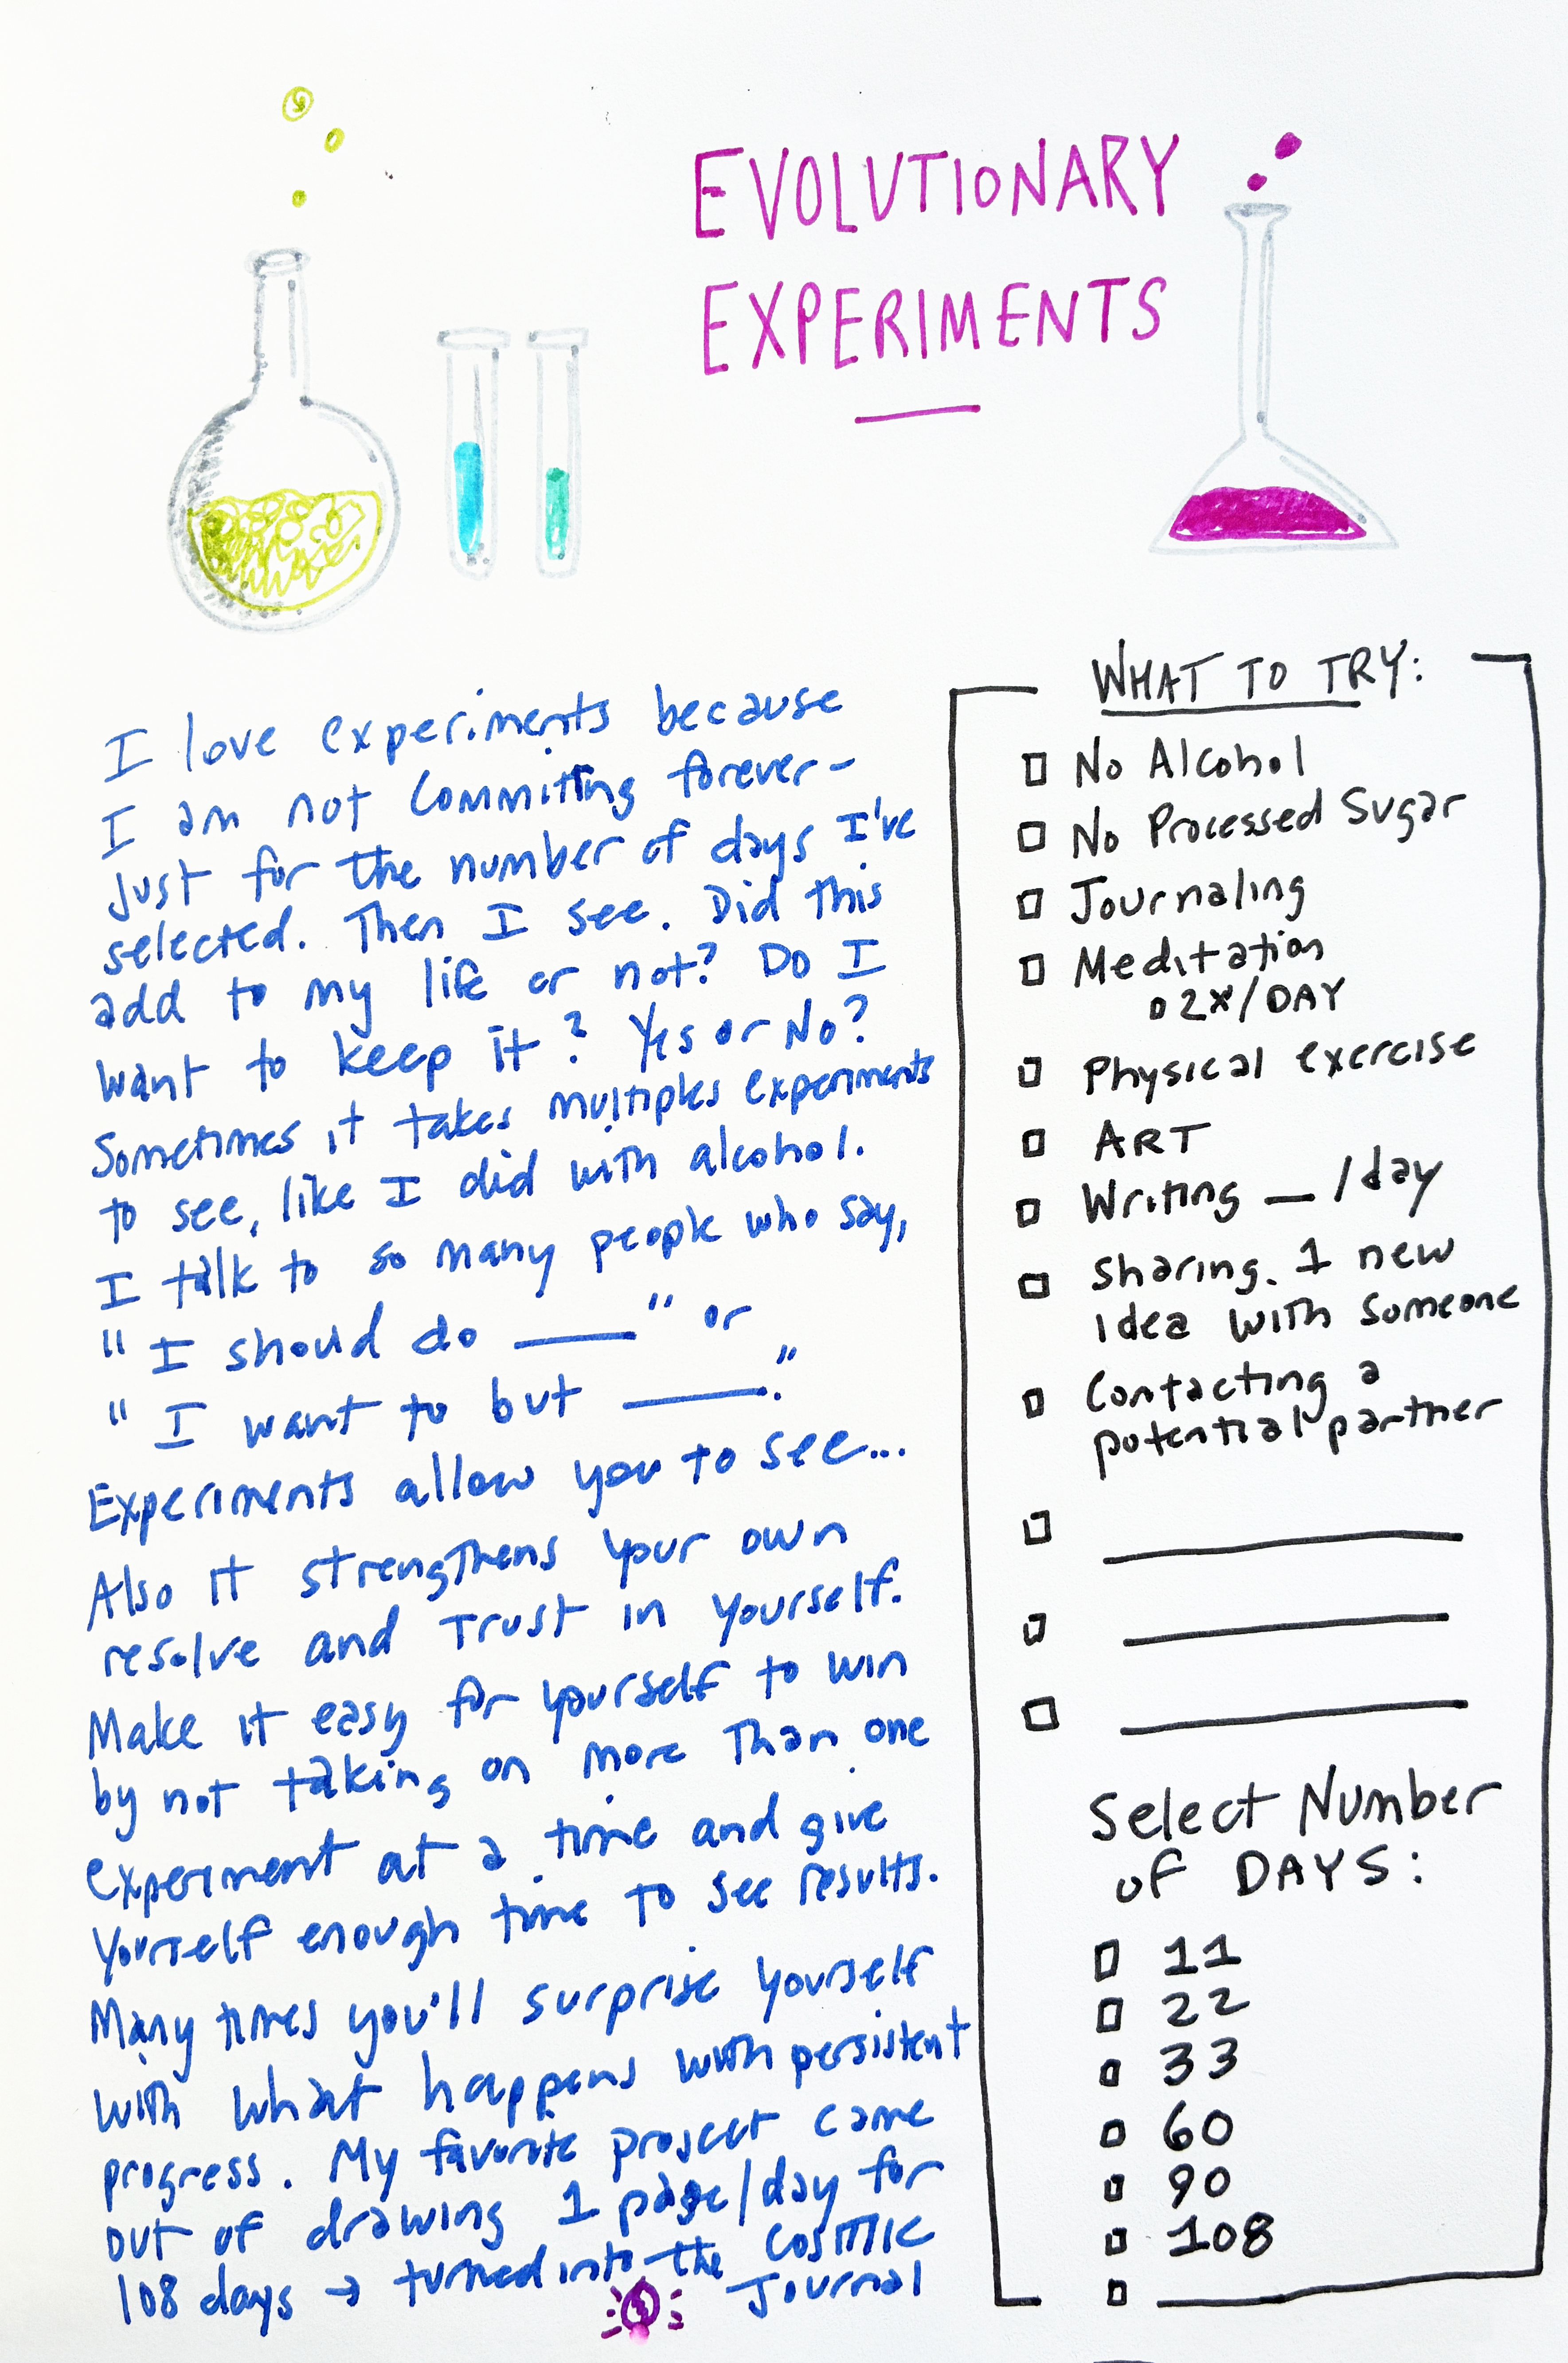 EVOLUTIONARY
EXPERIMENTS
I love experiments because
I am not committing forever-
Just for the number of days I've
selected. Then I see. Did this
add to my life or not? Do I
want to keep it? Yes or No?
Sometimes it takes multiples experiments
to see, like I did with alcohol.
I talk to so many people who say,
"I should do ____" or
"I want to but ____."
Experiments allow you to see...
Also it strengthens your own
resolve and Trust in yourself.
Make it easy for yourself to win
by not taking on more Than one
experiment at a time and give
yourself enough time to see results.
Many times you'll surprise yourself
with what happens with persistent
progress. My favorite project came
out of drawing 1 page/day for
108 days → turned into the Cosmic
Journal
WHAT TO TRY:
No Alcohol
No Processed Sugar
Journaling
Meditation
2x/DAY
Physical exercise
ART
Writing __ /day
Sharing 1 new
idea with someone
Contacting a
potential partner
Select Number
of DAYS:
11
22
33
60
90
108